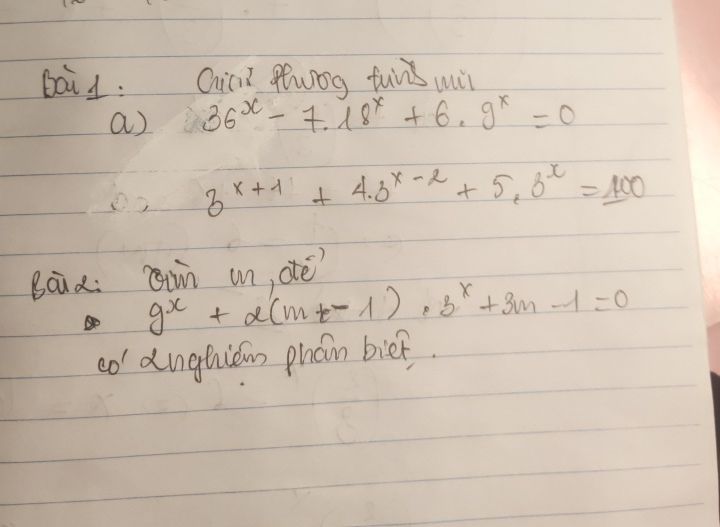 Bài 1: Giải phương trình mũ
a) 36^x - 7.18^x + 6.9^x = 0
3^{x+1} + 4.3^{x-2} + 5.3^x = 100
Bài 2: Tìm m, để
9^x + 2(m - 1).3^x + 3m - 1 = 0
có 2 nghiệm phân biệt.